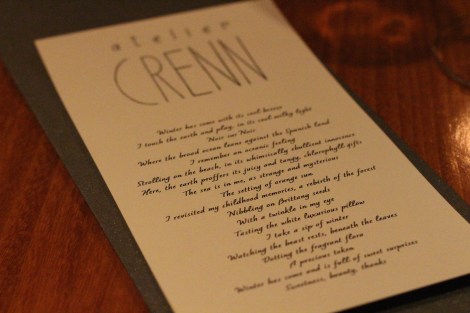 atelier
CRENN
Winter has come with its cool breeze
I touch the earth and play, in its cool milky light
Noir sur Noir
Where the broad ocean leans against the Spanish land
I remember an oceanic feeling
Strolling on the beach, in its whimsically ebullient innocence
Here, the earth proffers its juicy and tangy, chlorophyll gifts
The sea is in me, as strange and mysterious
The setting of orange sun
I revisited my childhood memories, a rebirth of the forest
Nibbling on Brittany seeds
With a twinkle in my eye
Tasting the white luxurious pillow
I take a sip of winter
Watching the beast rests, beneath the leaves
Dotting the fragrant flora
A precious token
Winter has come and is full of sweet surprises
Sweetness, bounty, thanks